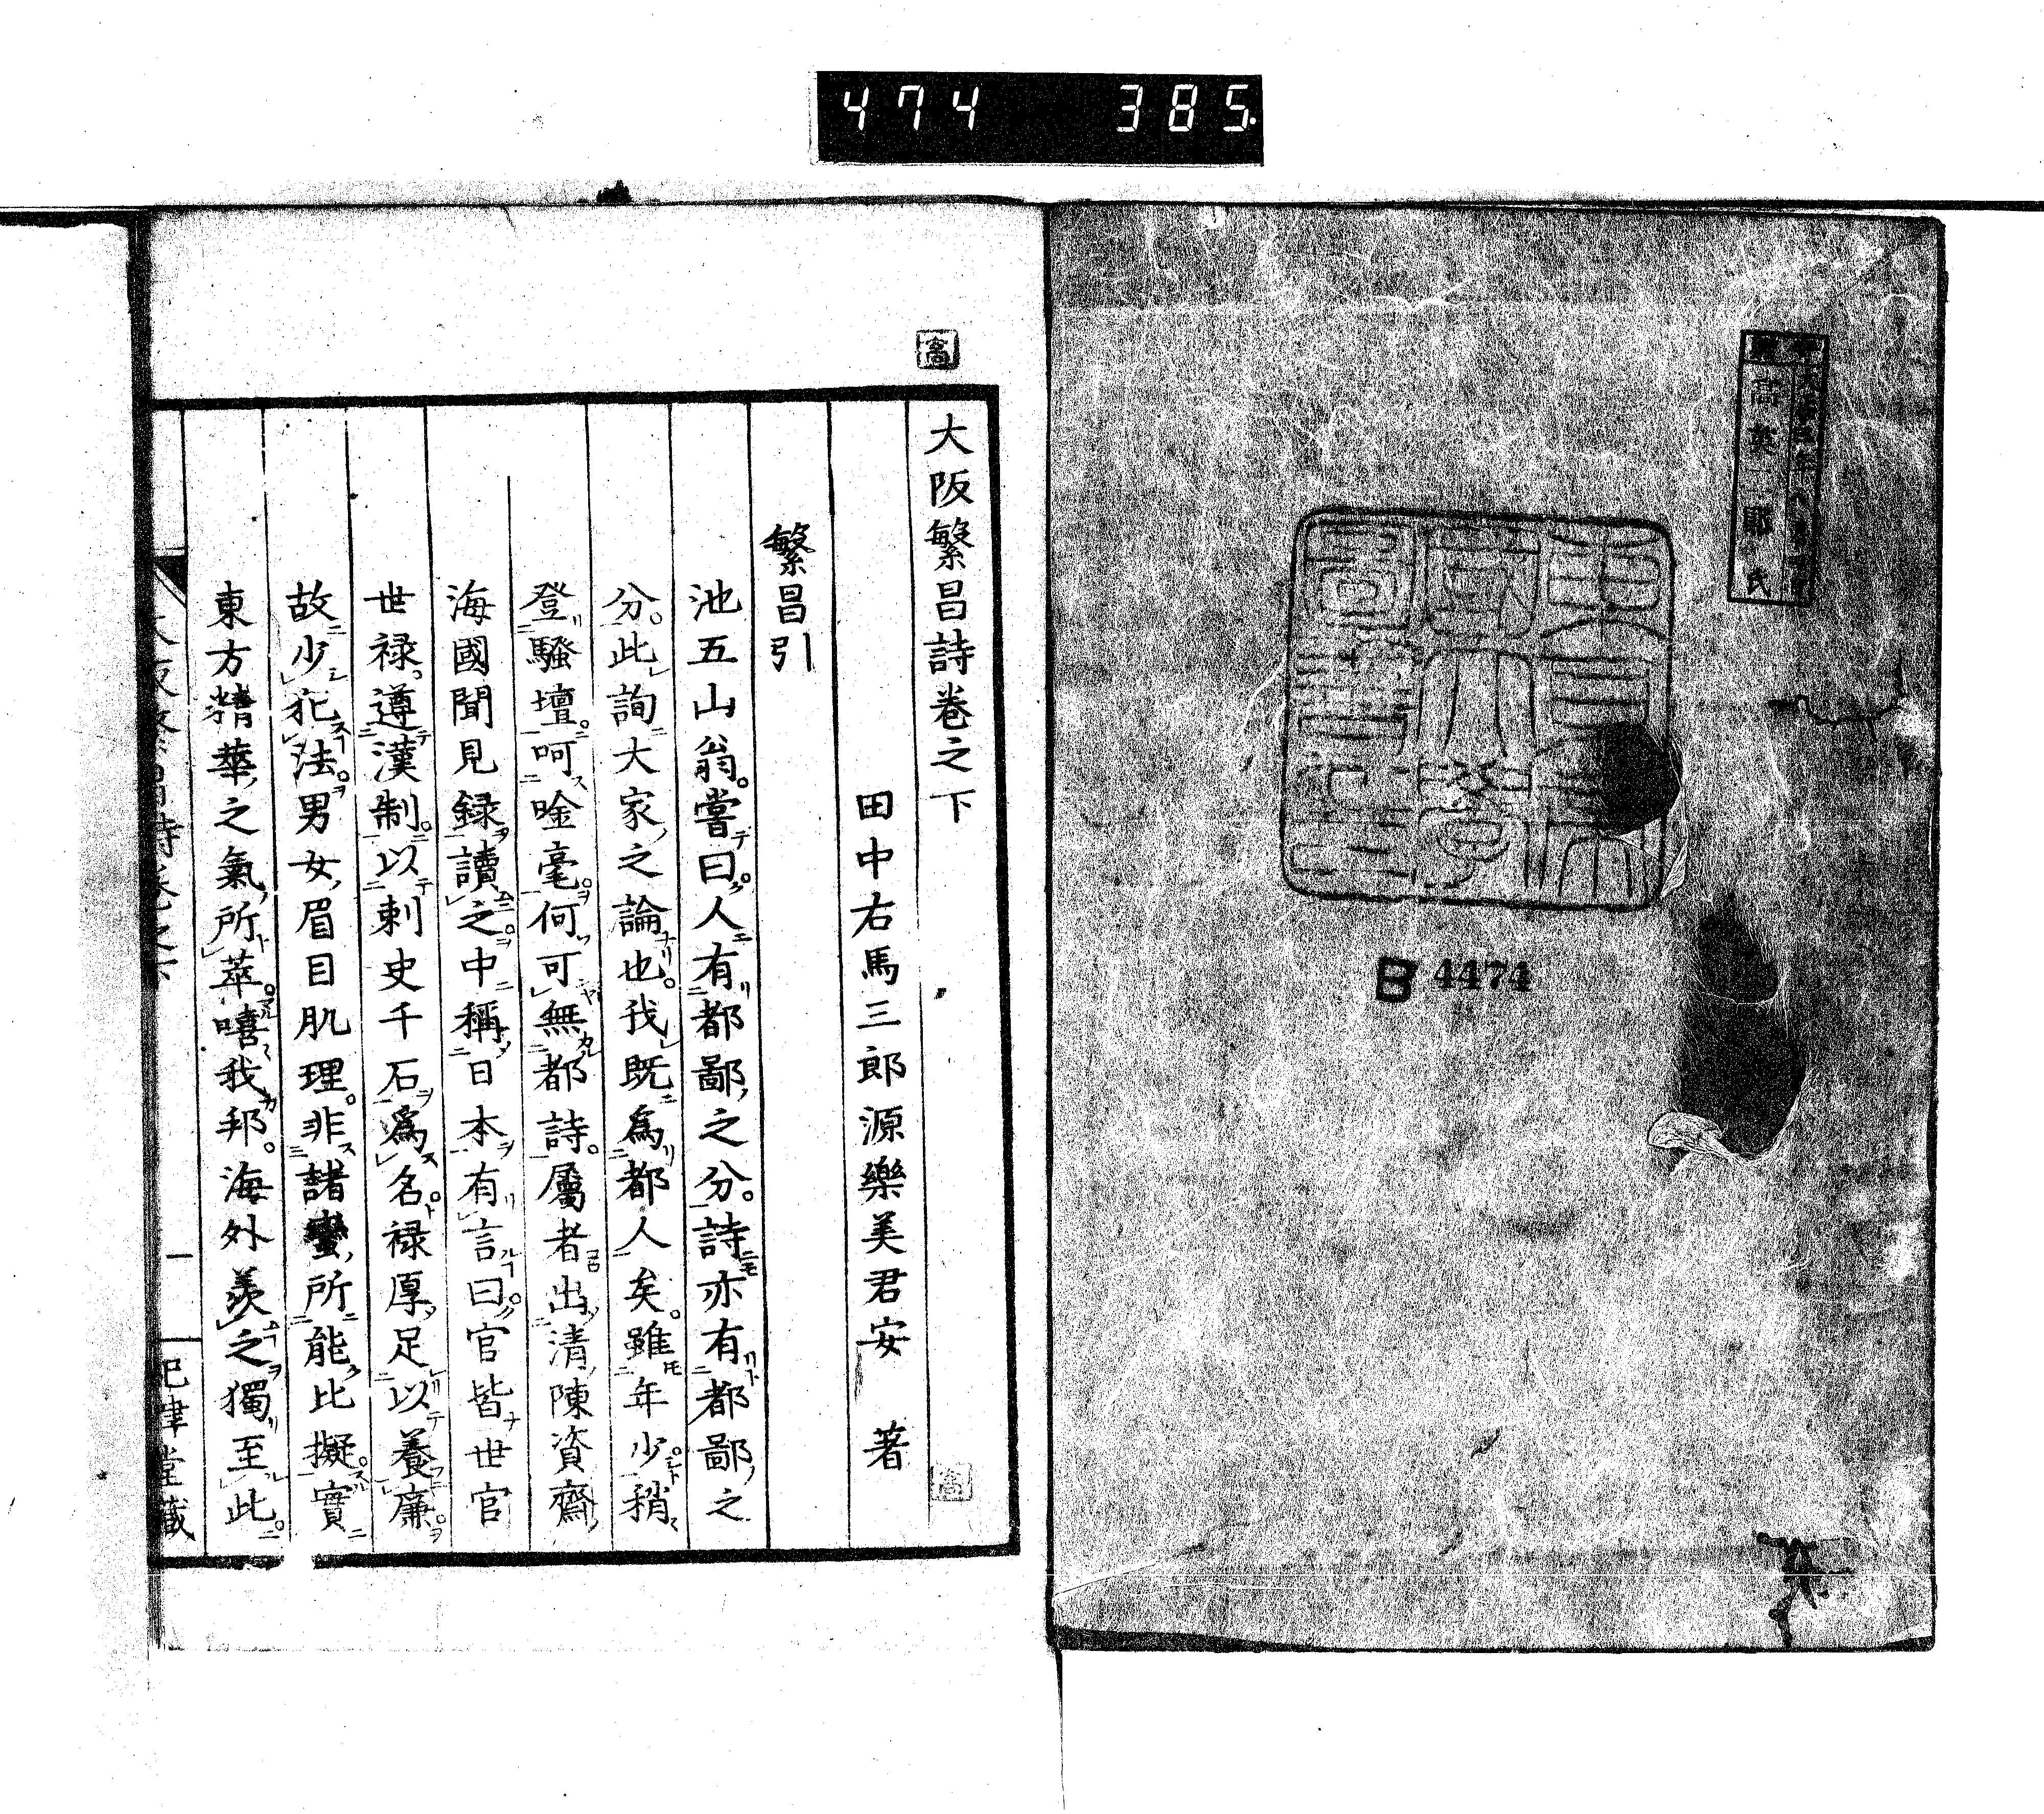 474 385.
B 4474
大阪繁昌詩卷之下
田中右馬三郎源樂美君安 著
繁昌引
池五山翁。嘗曰。人有都鄙之分。詩亦有都鄙之
分。此詢大家之論也。我既爲都人矣。雖年少稍
登騷壇。呵唫毫。何可無都詩。屬者出清陳資齋
海國聞見録讀之。中稱日本有言曰。官皆世官
世禄。遵漢制。以刺史千石爲名。禄厚足以養廉。
故少犯法。男女眉目肌理。非諸蠻所能比擬。實
東方精華之氣所萃。嘻我邦。海外羨之獨至此。
大阪繁昌詩卷之下
一
巳津堂藏